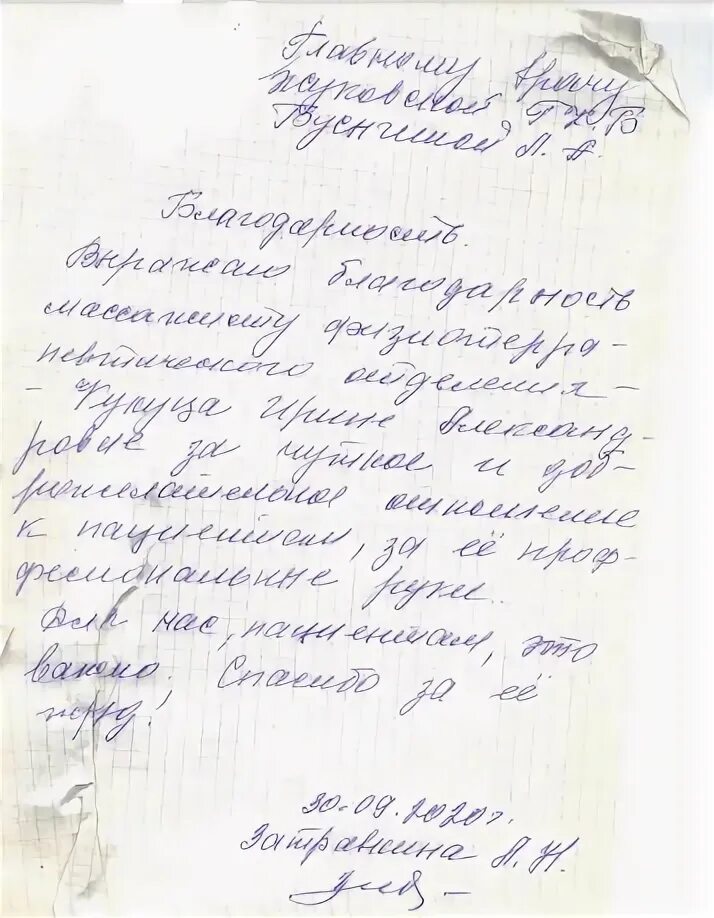 Главному врачу
Жуковской ГКБ
Бусыгиной Л. А.
Благодарность.
Выражаю благодарность
массажисту физиотерра-
певтического отделения –
– Кукуца Ирине Александ-
ровне за чуткое и доб-
рожелательное отношение
к пациентам, за её проф-
фессиональные руки.
Для нас, пациентам, это
важно. Спасибо за её
труд!
30.09.2020г.
Л. Н.